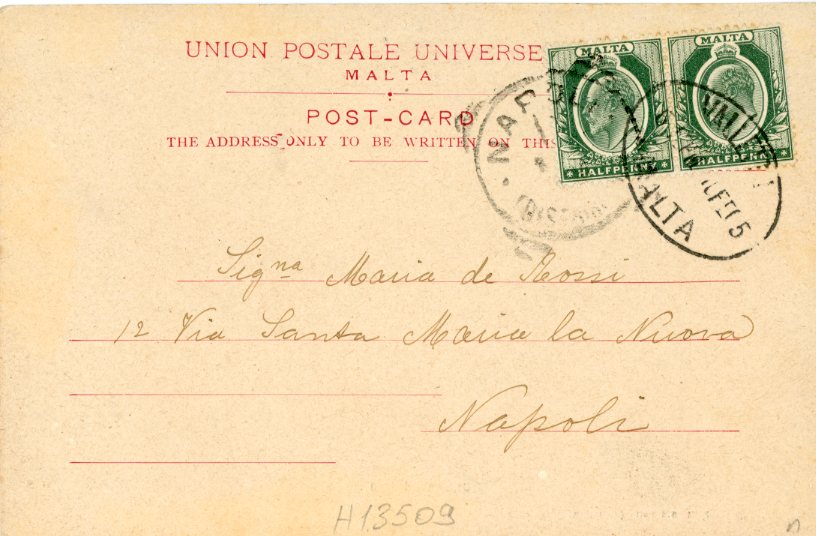 UNION POSTALE UNIVERSE
MALTA
POST-CARD
THE ADDRESS ONLY TO BE WRITTEN ON THIS
MALTA
HALFPENNY
MALTA
HALFPENNY
NAP
MALTA
Sigᶰᵃ Maria de Rossi
12 Via Santa Maria la Nuova
Napoli
H13509
n